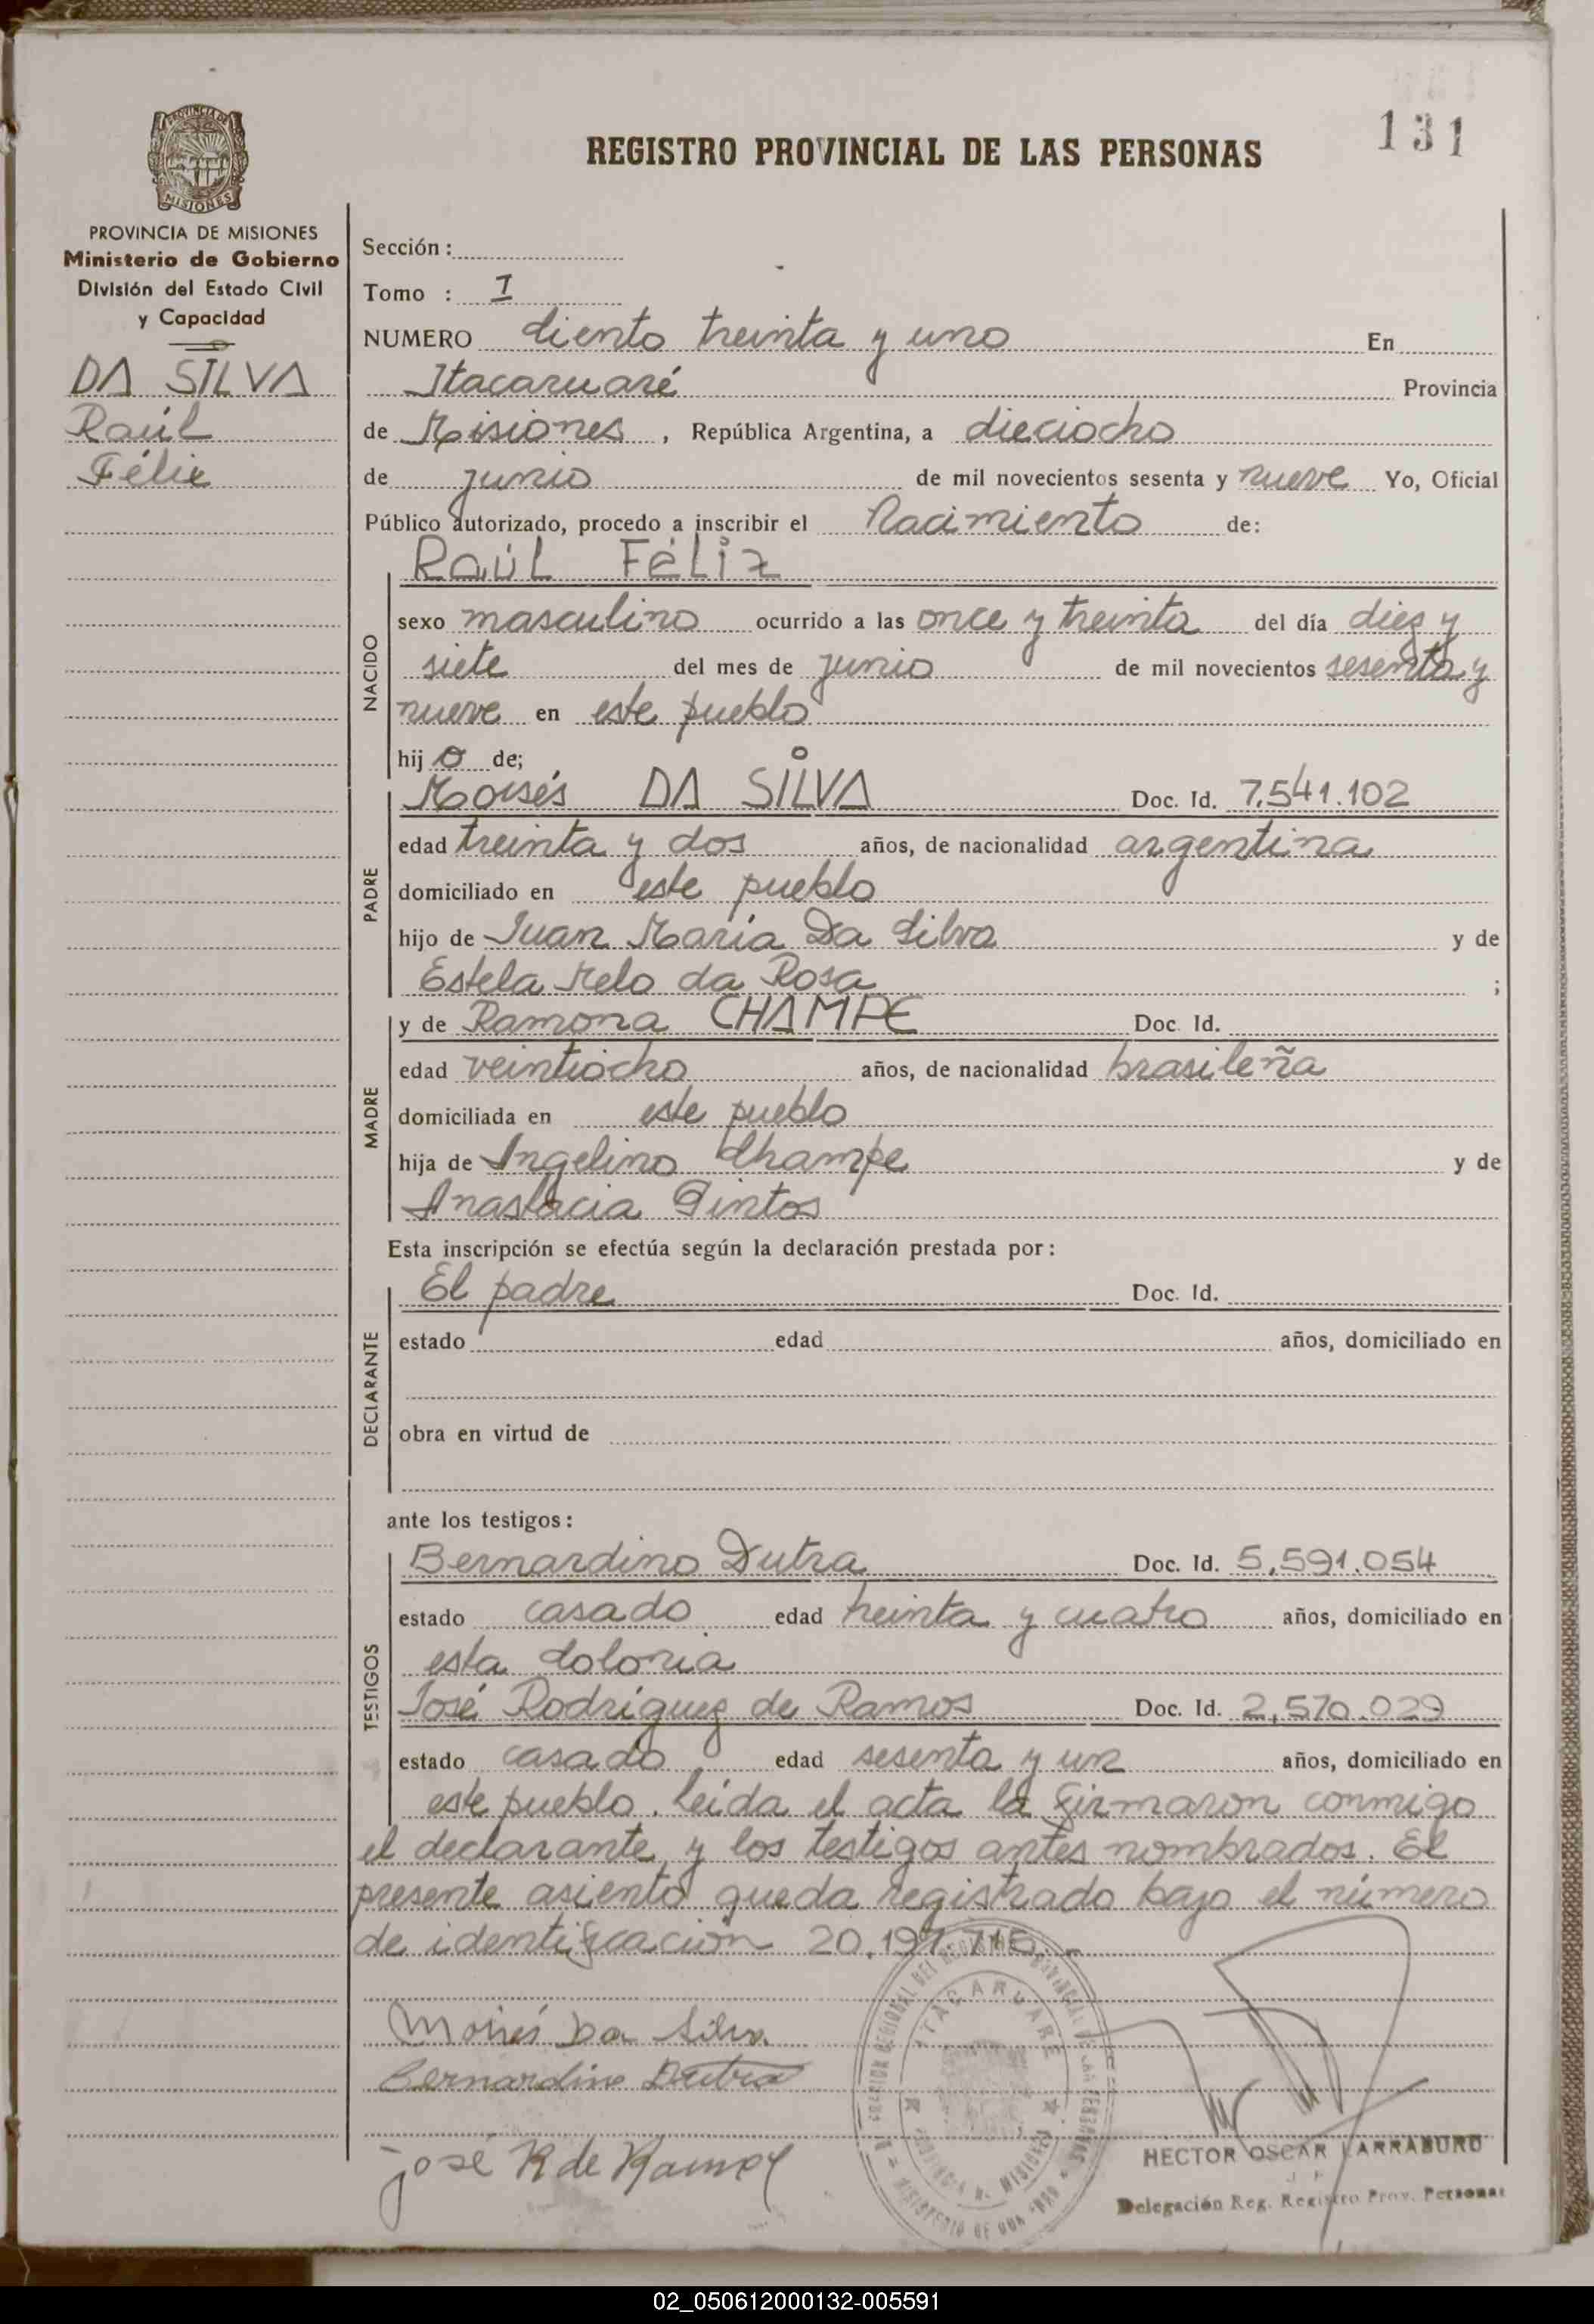 131
REGISTRO PROVINCIAL DE LAS PERSONAS
PROVINCIA DE MISIONES
Ministerio de Gobierno
División del Estado Civil
y Capacidad
DA SILVA
Raúl
Félix
Sección :
Tomo : I
NUMERO Ciento treinta y uno En
Itacaruaré Provincia
de Misiones , República Argentina, a dieciocho
de junio de mil novecientos sesenta y nueve Yo, Oficial
Público autorizado, procedo a inscribir el Nacimiento de:
NACIDO
RaÚL FéLiz
sexo masculino ocurrido a las once y treinta del día diez y
siete del mes de junio de mil novecientos sesenta y
nueve en este pueblo
hijo de;
PADRE
Moisés DA SILVA Doc. Id. 7.541.102
edad treinta y dos años, de nacionalidad argentina
domiciliado en este pueblo
hijo de Juan María Da Silva y de
Estela Melo da Rosa ;
MADRE
y de Ramona CHAMPE Doc. Id.
edad veintiocho años, de nacionalidad brasileña
domiciliada en este pueblo
hija de Angelino Champe y de
Anastacia Pintos
Esta inscripción se efectúa según la declaración prestada por:
DECLARANTE
El padre Doc. Id.
estado edad años, domiciliado en
obra en virtud de
ante los testigos:
TESTIGOS
Bernardino Dutra Doc. Id. 5.591.054
estado casado edad treinta y cuatro años, domiciliado en
esta Colonia
José Rodríguez de Ramos Doc. Id. 2.570.029
estado casado edad sesenta y un años, domiciliado en
este pueblo. Leída el acta la firmaron conmigo
el declarante y los testigos antes nombrados. El
presente asiento queda registrado bajo el número
de identificación 20.197.716.-
Moisés Da Silva
Bernardino Dutra
José R de Ramos
ITACARUARE
HECTOR OSCAR LARRABURU
Delegación Reg. Registro Prov. Personas
02_050612000132-005591